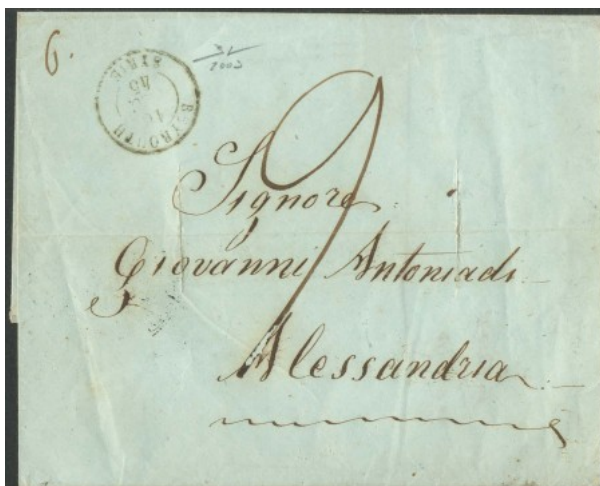 6.
BEYROUTH
SYRIE
45
2
Signore
Giovanni Antoniadi
Alessandria